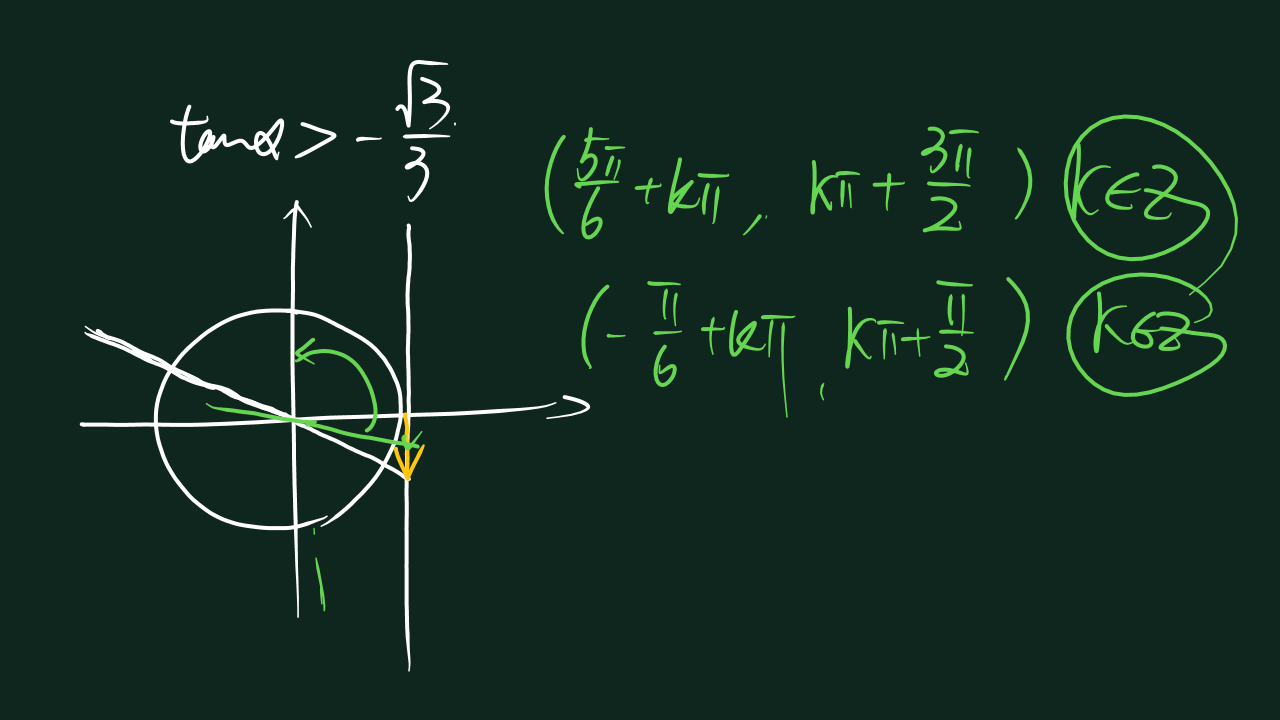 tanα > -√3/3
(5π/6 + kπ, kπ + 3π/2) k∈Z
(-π/6 + kπ, kπ + π/2) k∈Z